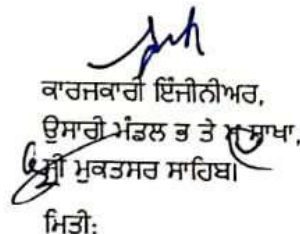 ਕਾਰਜਕਾਰੀ ਇੰਜੀਨੀਅਰ,
ਉਸਾਰੀ ਮੰਡਲ ਭ ਤੇ ਮ ਸ਼ਾਖਾ,
ਸ੍ਰੀ ਮੁਕਤਸਰ ਸਾਹਿਬ।
ਮਿਤੀ: